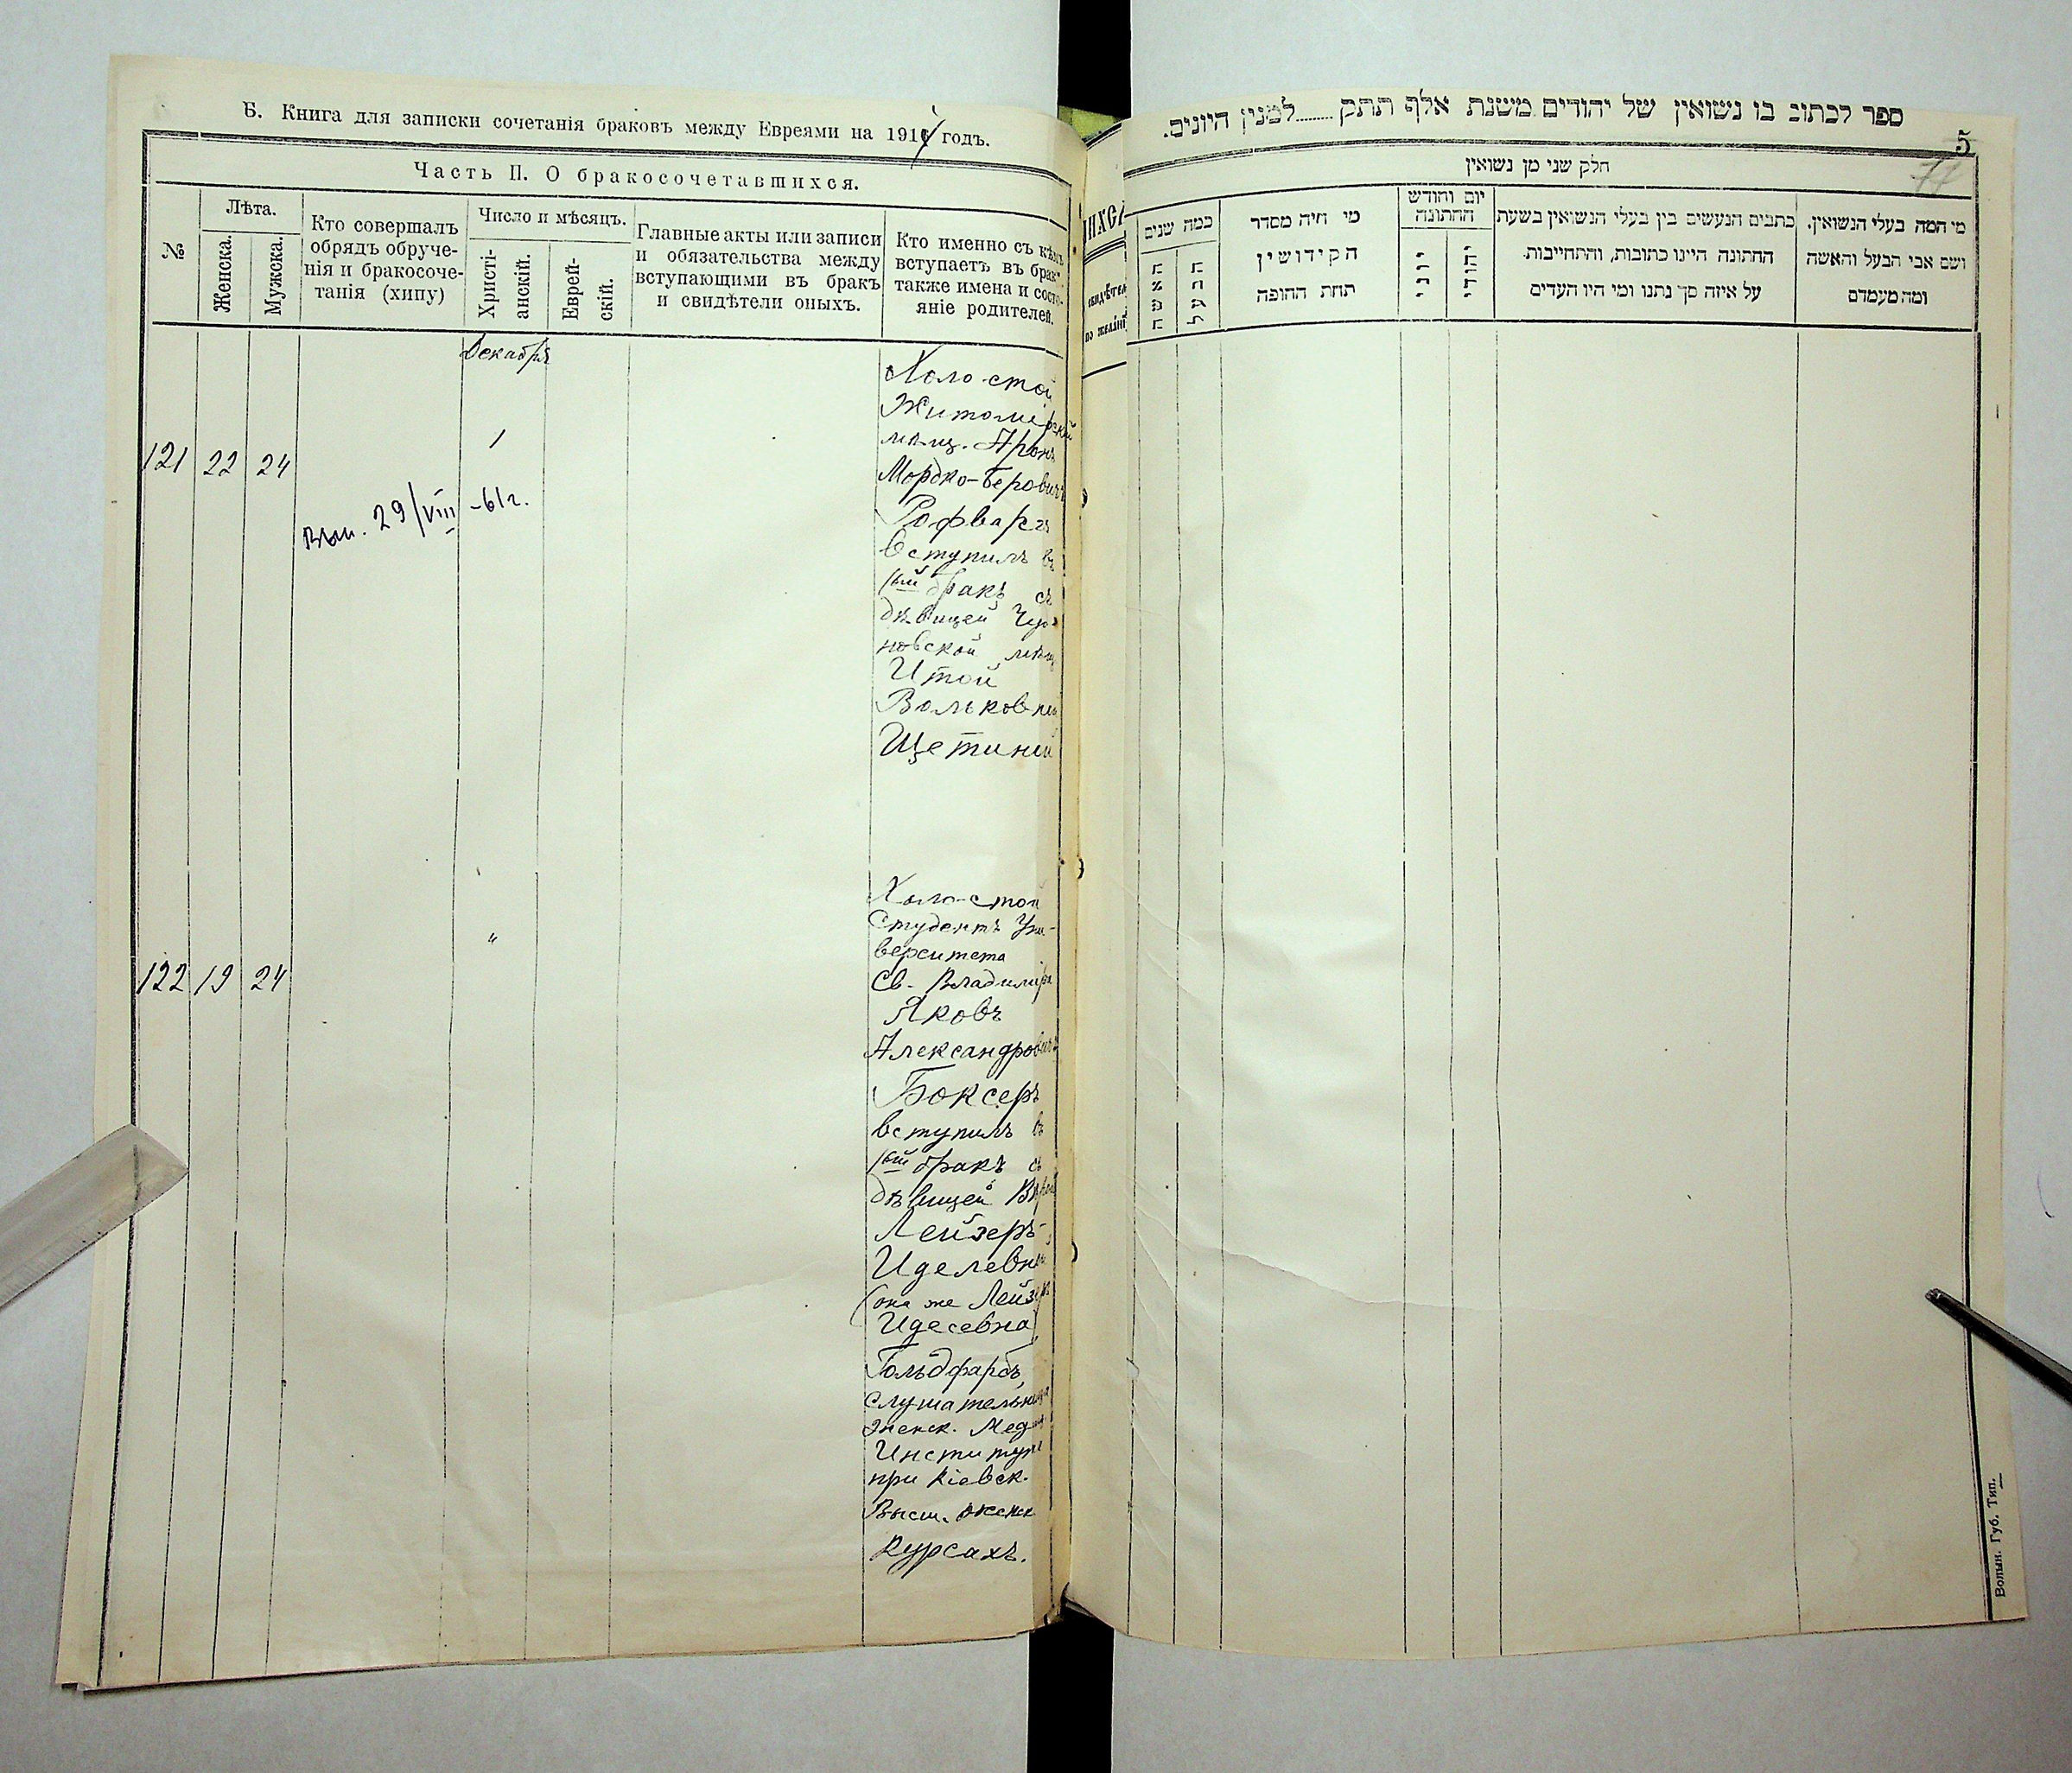 Б. Книга для записки сочетанія браковъ между Евреями на 191 годъ.
Часть II. О бракосочетавшихся.
№
Лѣта.
Женска.
Мужска.
Кто совершалъ
обрядъ обруче-
нія и бракосоче-
танія (хипу)
Число и мѣсяцъ.
Христі-
анскій.
Еврей-
скій.
Главные акты или записи
и обязательства между
вступающими въ бракъ
и свидѣтели оныхъ.
Кто именно съ кѣмъ
вступаетъ въ бракъ
также имена и состо-
яніе родителей.
Декабря
121 22 24
1
Вып. 29/VIII -61г.
Холо-стой
Житомірскій
мѣщ. Аронъ
Мордко-Беровичъ
Рофваргъ
вступилъ въ
1ый бракъ съ
дѣвицей
новской мѣщ
Итой
Вольковной
Щетиной
122 19 24
"
Холо-стой
Студентъ Уни-
верситета
Св. Владиміра
Яковъ
Александровичъ
Боксеръ
вступилъ въ
1ый бракъ съ
дѣвицей
Лейзеръ-
Иделевной
(она же
Идесевна)
Гольдфарбъ,
слушательница
Женск. Мед
Института
при Кіевск.
Высш. женск
Курсахъ.
ספר לכתוב בו נשואין של יהודים משנת אלף תתק........למנין היונים.
5
77
חלק שני מן נשואין
כמה שנים
האשה
הבעל
מי היה מסדר
הקידושין
תחת החופה
יום וחודש
החתונה
יוני
יהודי
כתבים הנעשים בין בעלי הנשואין בשעת
החתונה היינו כתובות, והתחייבות
על איזה סך נתנו ומי היו העדים
מי המה בעלי הנשואין.
ושם אבי הבעל והאשה
ומה מעמדם
Волын. Губ. Тип.